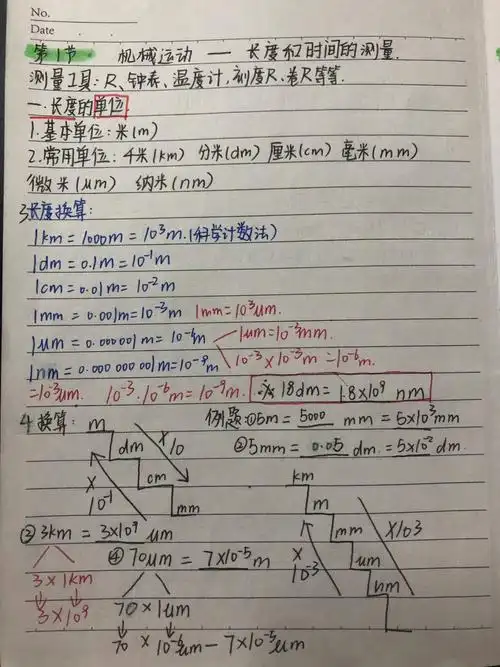 No.
Date
第1节 机械运动 — 长度和时间的测量.
测量工具:R、钟表、温度计,刻度R、卷R等等.
一.长度的单位
1.基本单位:米(m)
2.常用单位:千米(km) 分米(dm) 厘米(cm) 毫米(mm)
微米(μm) 纳米(nm)
3.长度换算:
1km=1000m=10³m.(科学计数法)
1dm=0.1m=10⁻¹m
1cm=0.01m=10⁻²m
1mm=0.001m=10⁻³m 1mm=10³μm.
1μm=0.000001m=10⁻⁶m 1μm=10⁻³mm.
1nm=0.000000001m=10⁻⁹m 10⁻³×10⁻³m=10⁻⁶m.
=10⁻³μm. 10⁻³·10⁻⁶m=10⁻⁹m. 18dm=1.8×10⁹ nm
4.换算: 例题:①5m=5000 mm=5×10³mm
②5mm=0.05 dm.=5×10⁻²dm.
m
dm
cm
mm
×10
×
10⁻¹
km
m
mm
μm
nm
×10³
×
10⁻³
③3km=3×10⁹ μm
3×1km
3×10⁹
④70μm=7×10⁻⁵m
70×1μm
70×10⁻⁶μm–7×10⁻⁵μm